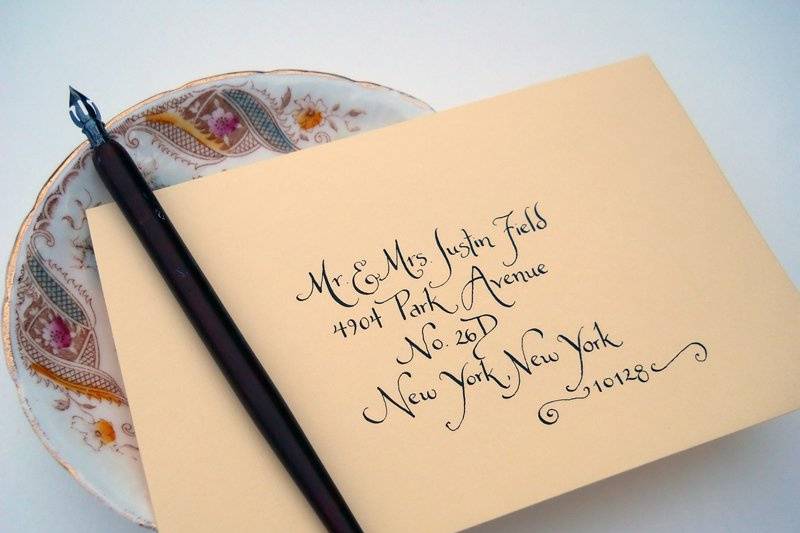 Mr. & Mrs. Justin Field
4904 Park Avenue
No. 26D
New York, New York
10128